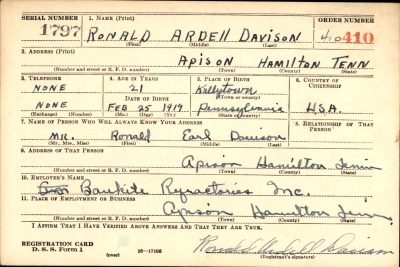 SERIAL NUMBER 1. NAME (Print) ORDER NUMBER
1797 RONALD ARDELL DAVISON 410 410
(First) (Middle) (Last)
2. ADDRESS (Print)
APISON HAMILTON TENN.
(Number and street or R. F. D. number) (Town) (County) (State)
3. TELEPHONE 4. AGE IN YEARS 5. PLACE OF BIRTH 6. COUNTRY OF CITIZENSHIP
NONE 21 Kellytown
DATE OF BIRTH (Town or county)
NONE FEB 25 1919 Pennsylvania USA.
(Exchange) (Number) (Mo.) (Day) (Yr.) (State or country)
7. NAME OF PERSON WHO WILL ALWAYS KNOW YOUR ADDRESS 8. RELATIONSHIP OF THAT PERSON
MR. Ronald Earl Davison
(Mr., Mrs., Miss) (First) (Middle) (Last)
9. ADDRESS OF THAT PERSON
Apison Hamilton Tenn
(Number and street or R. F. D. number) (Town) (County) (State)
10. EMPLOYER'S NAME
Bauxite Refractories Inc.
11. PLACE OF EMPLOYMENT OR BUSINESS
Apison Hamilton Tenn.
(Number and street or R. F. D. number) (Town) (County) (State)
I AFFIRM THAT I HAVE VERIFIED ABOVE ANSWERS AND THAT THEY ARE TRUE.
REGISTRATION CARD
D. S. S. Form 1 (over) 16—17105 Ronald Ardell Davison
(Registrant's signature)